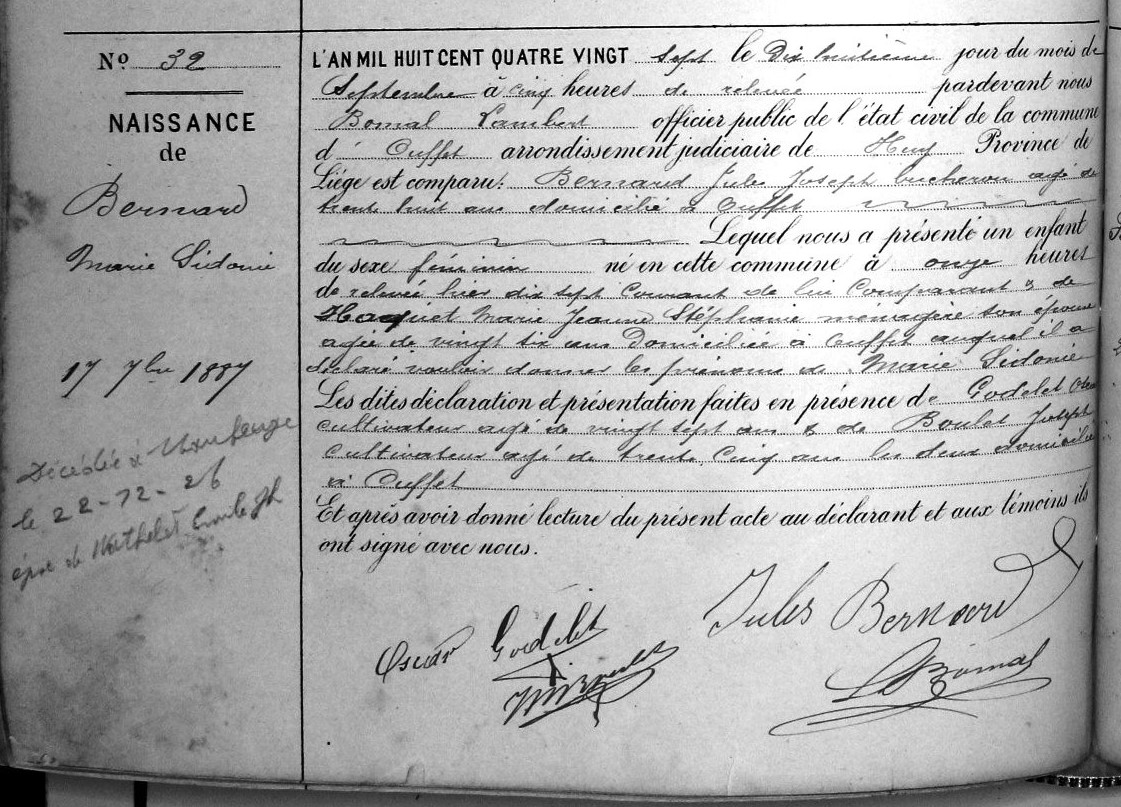 No 32
NAISSANCE
de
Bernard
Marie Sidonie
17 7bre 1887
Décédée à
le 22-12-26
épse de Mathelet
L'AN MIL HUIT CENT QUATRE VINGT sept le Dix huitième jour du mois de
Septembre à cinq heures de relevée pardevant nous
Bomal Lambert officier public de l'état civil de la commune
d' Ouffet arrondissement judiciaire de Huy Province de
Liége est comparu: Bernard Jules Joseph bucheron agé de
trente huit ans domicilié à Ouffet
Lequel nous a présenté un enfant
du sexe féminin né en cette commune à onze heures
de relevée, hier dix sept courant de lui Comparant & de
Haquet Marie Jeanne Stéphanie ménagère son épouse
agée de vingt six ans Domiciliée à Ouffet auquel il a
déclaré vouloir donner les prénoms de Marie Sidonie
Les dites déclaration et présentation faites en présence de Godelet
cultivateur agé de vingt sept ans & de Boulet Joseph
Cultivateur agé de trente cinq ans les deux domiciliés
à Ouffet
Et après avoir donné lecture du présent acte au déclarant et aux témoins ils
ont signé avec nous.
Jules Bernard
Oscar Godelet
Boulet
L Bomal